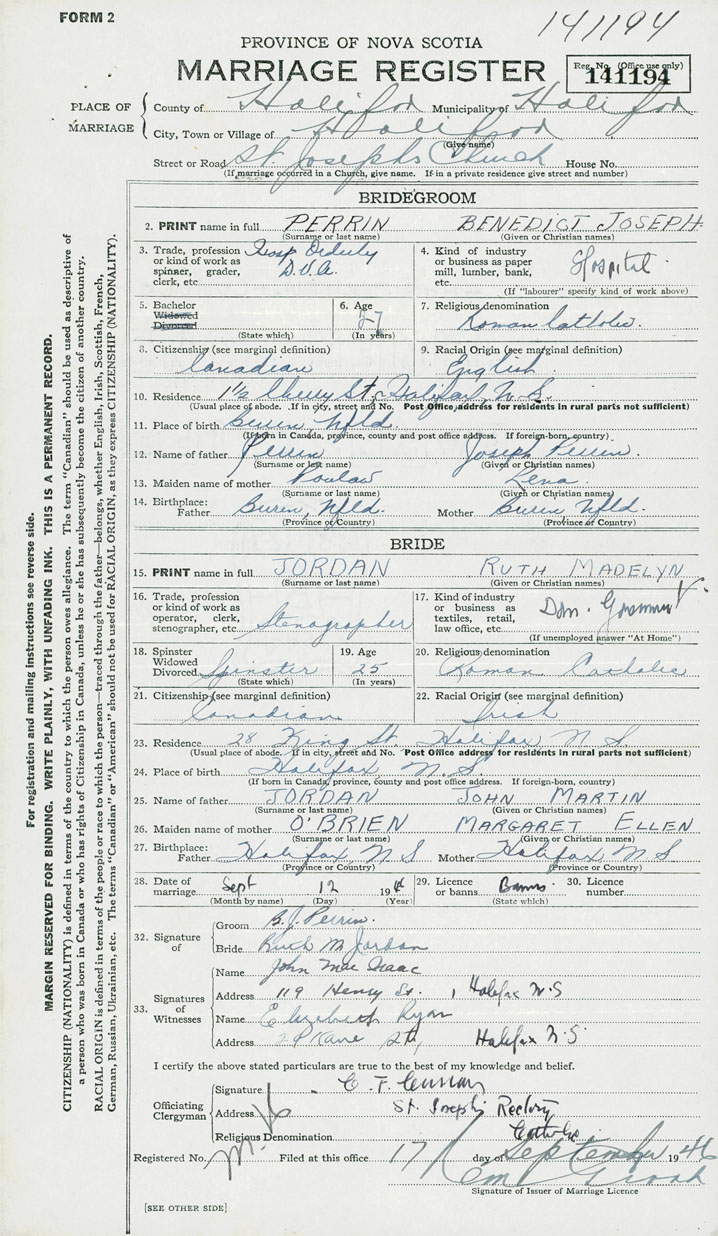 FORM 2
141194
PROVINCE OF NOVA SCOTIA
MARRIAGE REGISTER
Reg. No. (Office use only)
141194
PLACE OF MARRIAGE
County of Halifax Municipality of Halifax
City, Town or Village of Halifax
(Give name)
Street or Road St. Josephs Church House No.
(If marriage occurred in a Church, give name. If in a private residence give street and number)
BRIDEGROOM
2. PRINT name in full PERRIN BENEDICT JOSEPH
(Surname or last name) (Given or Christian names)
3. Trade, profession or kind of work as spinner, grader, clerk, etc. Hosp Orderly D.V.A.
4. Kind of industry or business as paper mill, lumber, bank, etc. Hospital
(If "labourer" specify kind of work above)
5. Bachelor Widowed Divorced
(State which)
6. Age
(In years)
7. Religious denomination
Roman Catholic.
8. Citizenship (see marginal definition)
Canadian
9. Racial Origin (see marginal definition)
English
10. Residence 1½ Cherry St. Halifax, N.S.
(Usual place of abode. If in city, street and No. Post Office address for residents in rural parts not sufficient)
11. Place of birth Buren, Nfld.
(If born in Canada, province, county and post office address. If foreign-born, country)
12. Name of father Perrin Joseph Perrin
(Surname or last name) (Given or Christian names)
13. Maiden name of mother Lena
(Surname or last name) (Given or Christian names)
14. Birthplace: Father Buren, Nfld. Mother Buren, Nfld.
(Province or Country) (Province or Country)
BRIDE
15. PRINT name in full JORDAN RUTH MADELYN
(Surname or last name) (Given or Christian names)
16. Trade, profession or kind of work as operator, clerk, stenographer, etc. Stenographer
17. Kind of industry or business as textiles, retail, law office, etc. Dom. Government
(If unemployed answer "At Home")
18. Spinster Widowed Divorced Spinster
(State which)
19. Age
25
(In years)
20. Religious denomination
Roman Catholic
21. Citizenship (see marginal definition)
Canadian
22. Racial Origin (see marginal definition)
Irish
23. Residence 28 King St. Halifax N.S.
(Usual place of abode. If in city, street and No. Post Office address for residents in rural parts not sufficient)
24. Place of birth Halifax, N.S.
(If born in Canada, province, county and post office address. If foreign-born, country)
25. Name of father JORDAN JOHN MARTIN
(Surname or last name) (Given or Christian names)
26. Maiden name of mother O'BRIEN MARGARET ELLEN
(Surname or last name) (Given or Christian names)
27. Birthplace: Father Halifax N S Mother Halifax, N S
(Province or Country) (Province or Country)
28. Date of marriage Sept 12 194
(Month by name) (Day) (Year)
29. Licence or banns Banns
(State which)
30. Licence number
32. Signature of
Groom B. J. Perrin.
Bride Ruth M Jordan
33. Signatures of Witnesses
Name John Mac Isaac
Address 119 Henry St., Halifax N.S
Name Elizabeth Ryan
Address Kane St., Halifax N.S.
I certify the above stated particulars are true to the best of my knowledge and belief.
Officiating Clergyman
Signature C. F.
Address St. Joseph's Rectory
Religious Denomination Catholic
Registered No. Filed at this office 17 day of September 1946
Signature of Issuer of Marriage Licence
[SEE OTHER SIDE]
For registration and mailing instructions see reverse side.
MARGIN RESERVED FOR BINDING. WRITE PLAINLY, WITH UNFADING INK. THIS IS A PERMANENT RECORD.
CITIZENSHIP (NATIONALITY) is defined in terms of the country to which the person owes allegiance. The term "Canadian" should be used as descriptive of
a person who was born in Canada or who has rights of Citizenship in Canada, unless he or she has subsequently become the citizen of another country.
RACIAL ORIGIN is defined in terms of the people or race to which the person—traced through the father—belongs, whether English, Irish, Scottish, French,
German, Russian, Ukrainian, etc. The terms "Canadian" or "American" should not be used for RACIAL ORIGIN, as they express CITIZENSHIP (NATIONALITY).